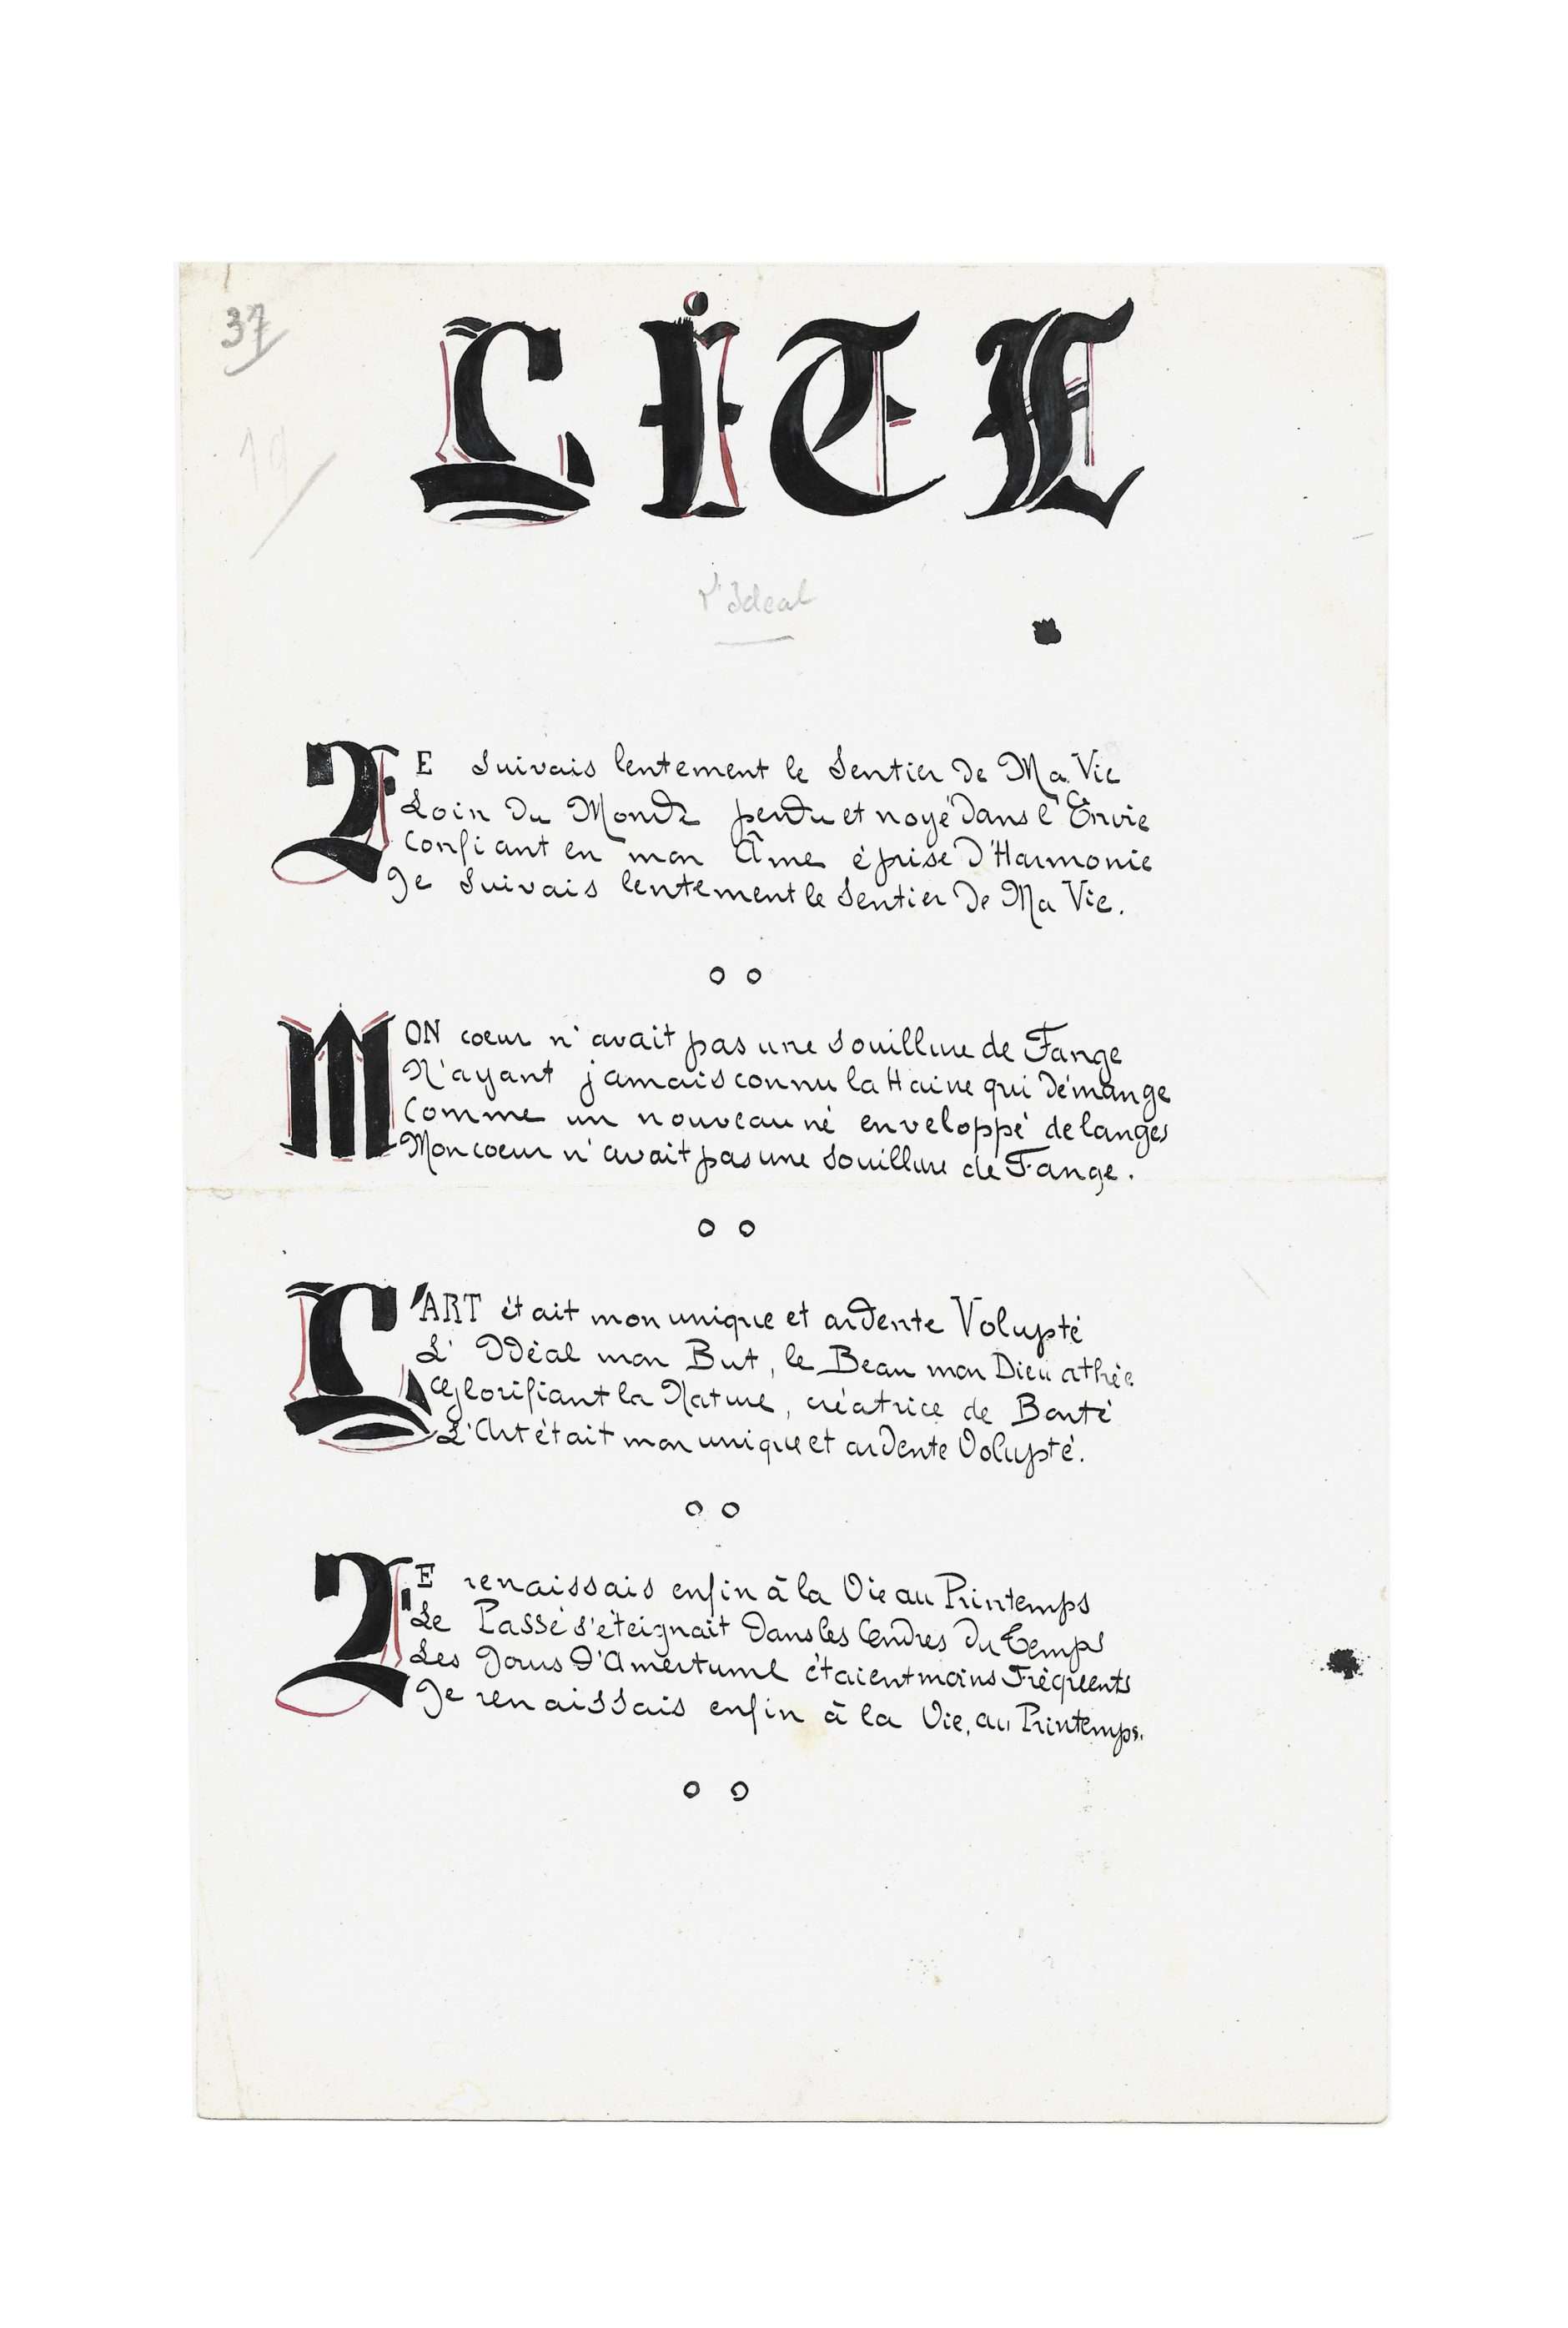 37
19
LiTL
l'Idéal
JE Suivais lentement le Sentier de Ma Vie
Loin du Monde perdu et noyé dans l'Envie
Confiant en mon Âme éprise d'Harmonie
Je Suivais lentement le Sentier de Ma Vie.
MON coeur n'avait pas une Souillure de Fange
N'ayant jamais connu la Haine qui démange
Comme un nouveau né enveloppé de langes
Mon coeur n'avait pas une Souillure de Fange.
L'ART était mon unique et ardente Volupté
L'Idéal mon But, le Beau mon Dieu athée
Glorifiant la Nature, créatrice de Bonté
L'Art était mon unique et ardente Volupté.
JE renaissais enfin à la Vie au Printemps
Le Passé s'éteignait dans les Cendres du Temps
Les Jours d'Amertume étaient moins Fréquents
Je renaissais enfin à la Vie, au Printemps.